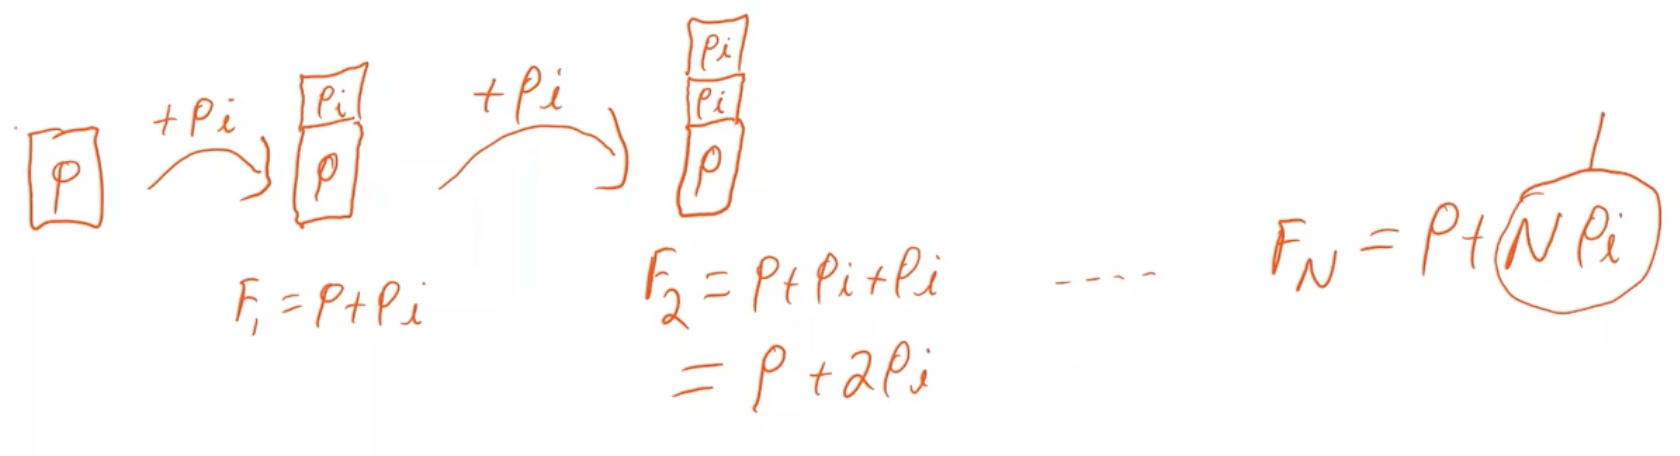 P
+Pi
Pi
P
+Pi
Pi
Pi
P
F1 = P+Pi
F2 = P+Pi+Pi
= P+2Pi
----
FN = P+NPi